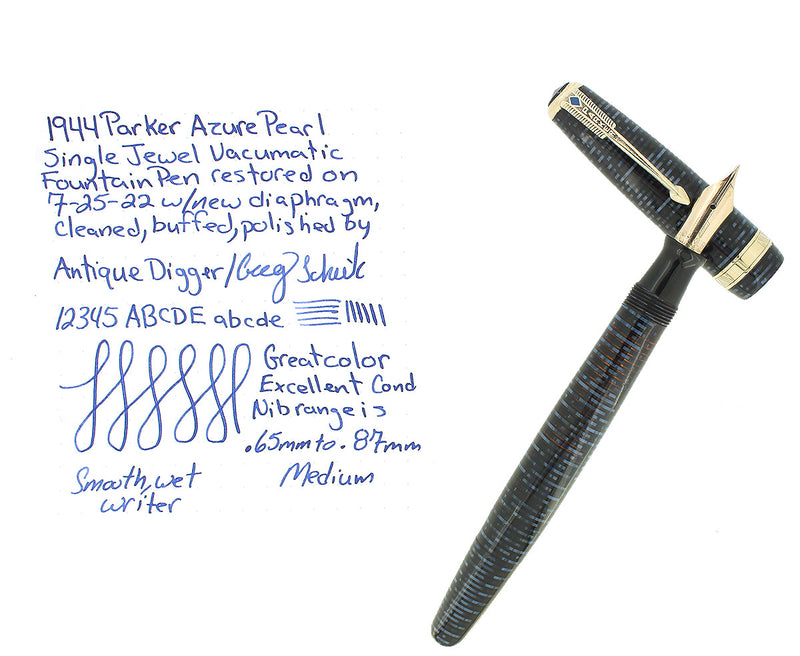 1944 Parker Azure Pearl
Single Jewel Vacumatic
Fountain Pen restored on
7-25-22 w/new diaphragm,
cleaned, buffed, polished by
Antique Digger/Greg
12345 ABCDE abcde
Great color
Excellent Cond
Nib range is
.65mm to .87mm
Medium
Smooth, wet
writer